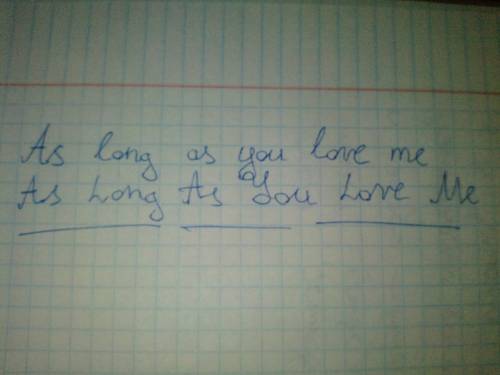 As long as you love me
As Long As You Love Me